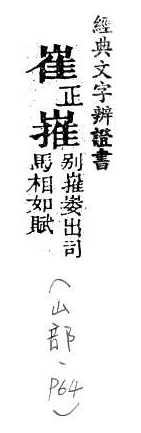 經典文字辨證書
崔正嶊别嶊崣出司
馬相如賦
(山部、P64)